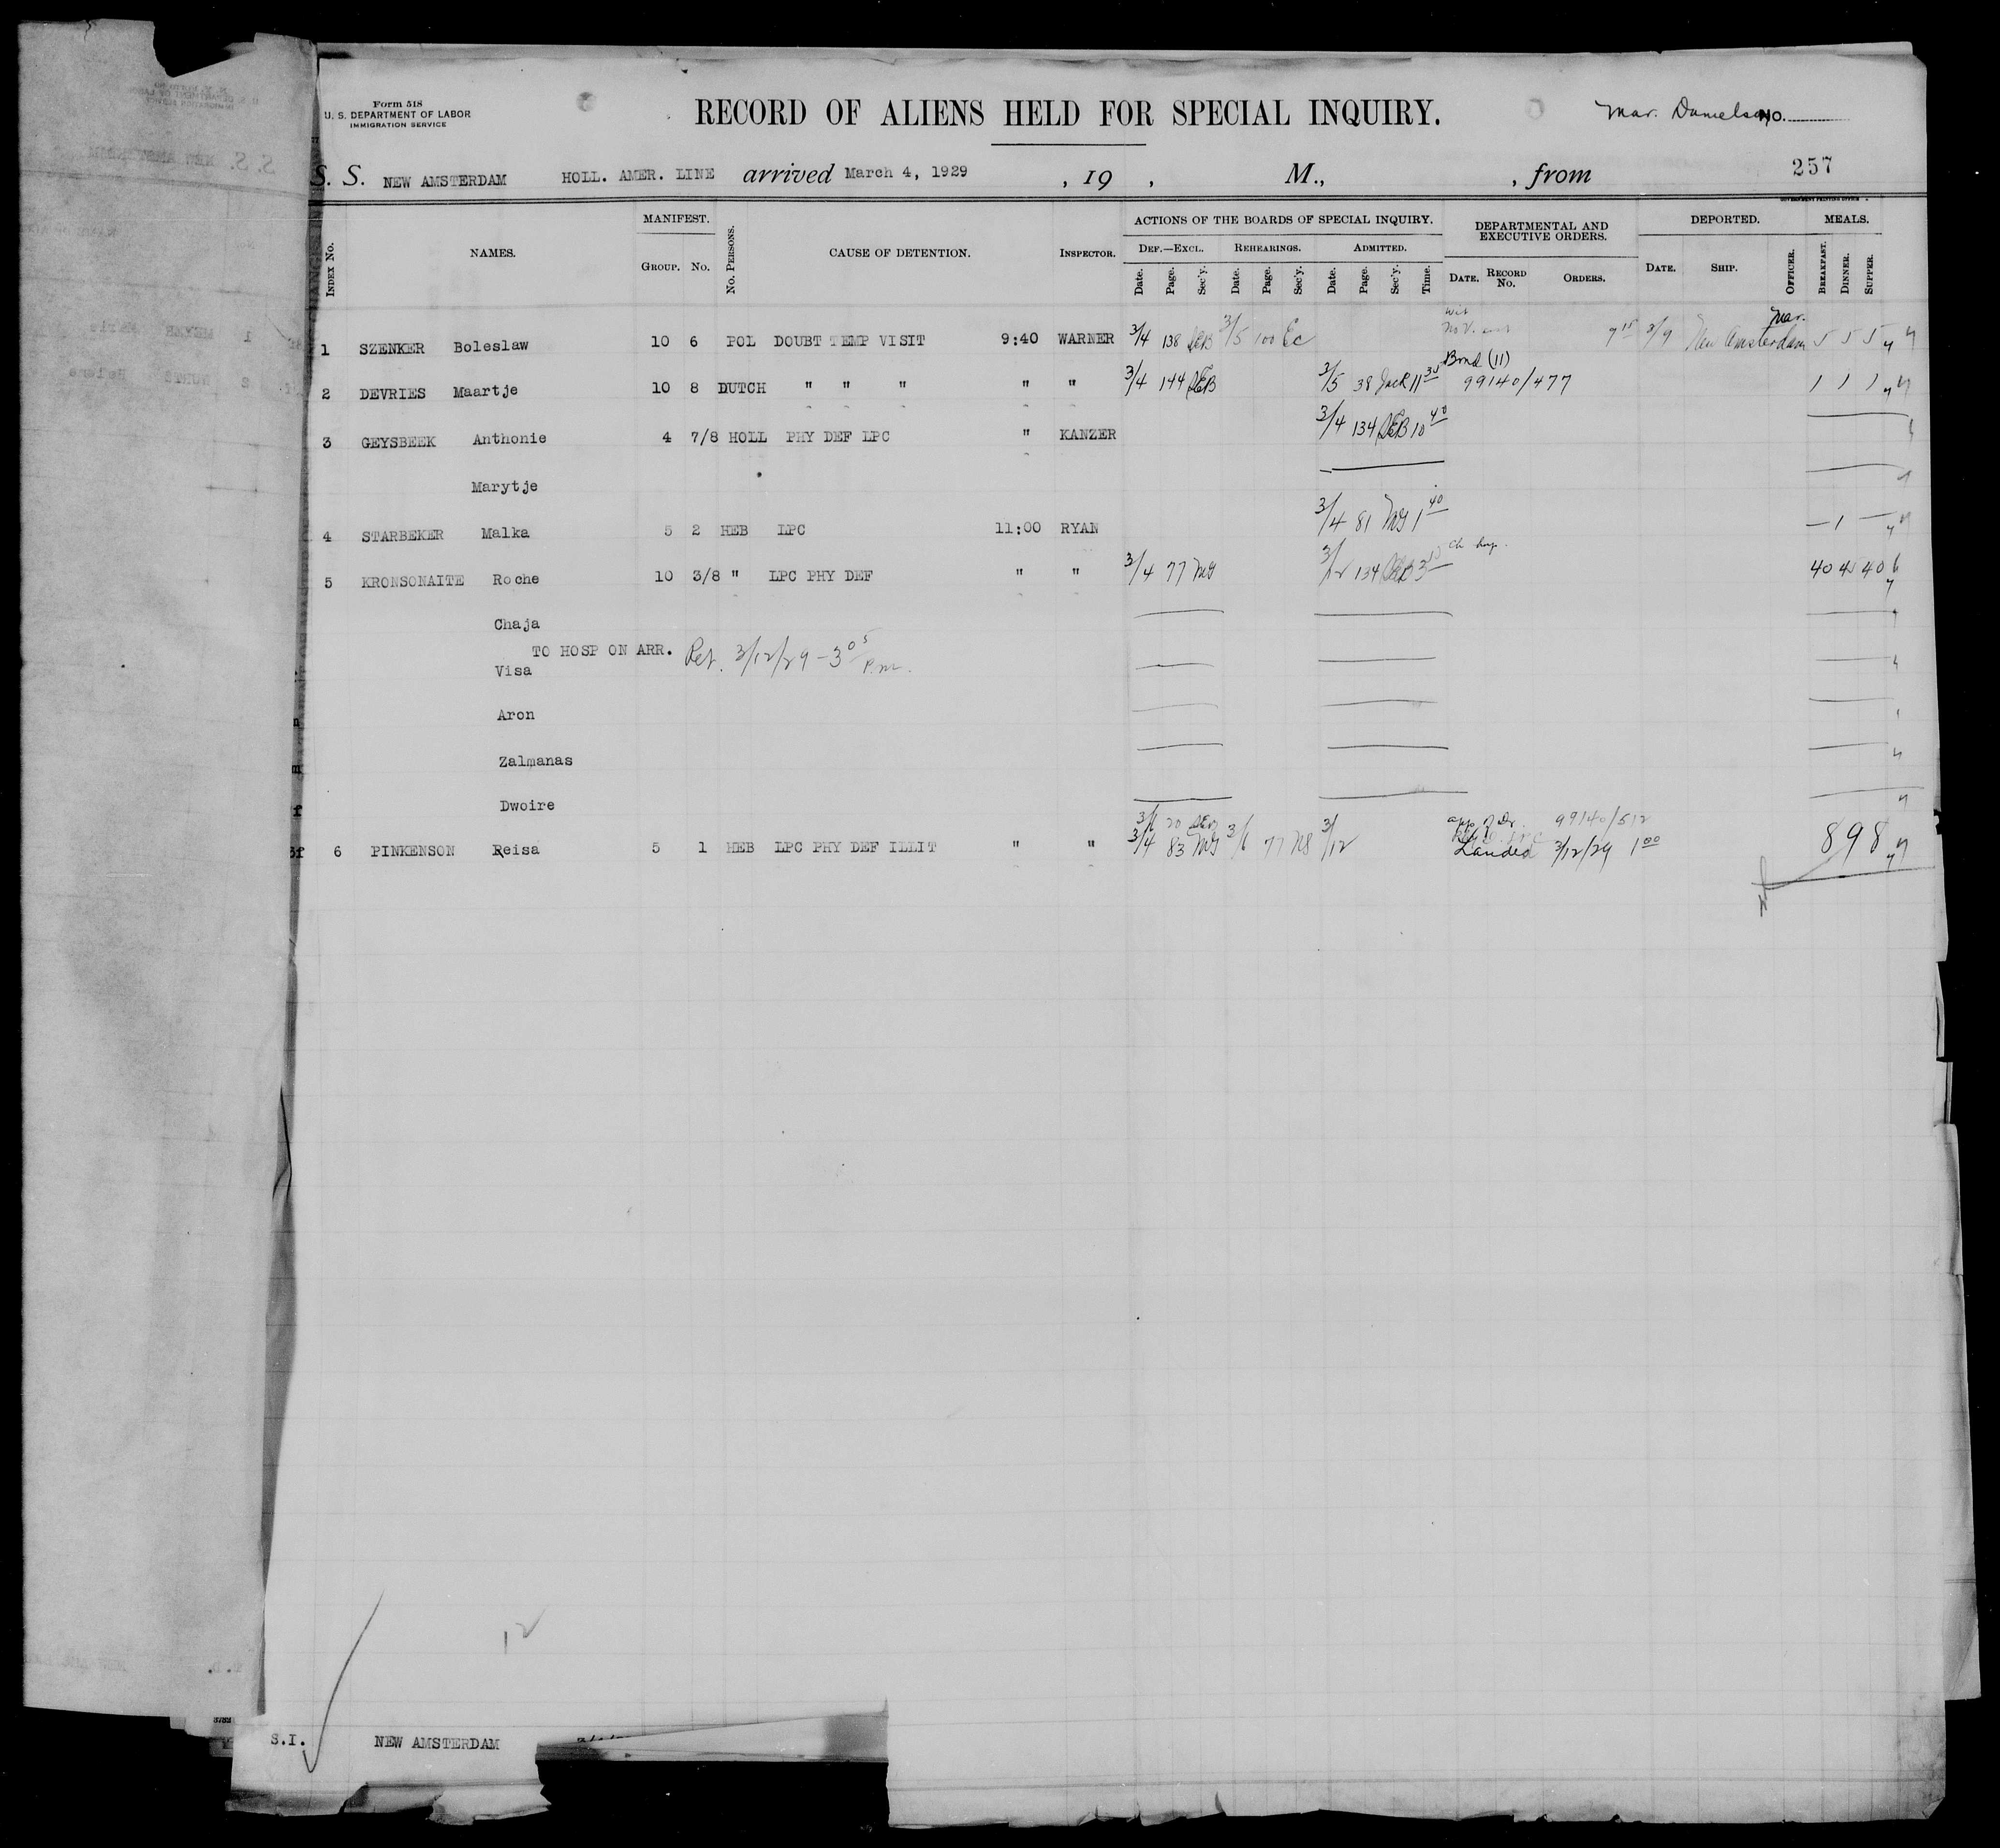 Form 518
U. S. DEPARTMENT OF LABOR
IMMIGRATION SERVICE
RECORD OF ALIENS HELD FOR SPECIAL INQUIRY.
Mar. Danielson NO.
257
S. S. NEW AMSTERDAM HOLL. AMER. LINE arrived March 4, 1929 , 19 , M., , from
GOVERNMENT PRINTING OFFICE
INDEX NO. NAMES. MANIFEST. GROUP. NO. NO. PERSONS. CAUSE OF DETENTION. INSPECTOR. ACTIONS OF THE BOARDS OF SPECIAL INQUIRY. DEF.—EXCL. REHEARINGS. ADMITTED. DEPARTMENTAL AND EXECUTIVE ORDERS. DEPORTED. MEALS.
Date. Page. Sec'y. Date. Page. Sec'y. Date. Page. Sec'y. Time. DATE. RECORD NO. ORDERS. DATE. SHIP. OFFICER. BREAKFAST. DINNER. SUPPER.
1 SZENKER Boleslaw 10 6 POL DOUBT TEMP VISIT 9:40 WARNER 3/4 138 DEB 3/5 100 Ec 7 15 3/9 New Amsterdam Mar. 5 5 5
2 DEVRIES Maartje 10 8 DUTCH " " " " " 3/4 144 DEB 3/5 38 Jack 11 35 Bond (11) 99140/477 1 1 1
3 GEYSBEEK Anthonie 4 7/8 HOLL PHY DEF LPC " KANZER 3/4 134 DEB 10 40
Marytje
4 STARBEKER Malka 5 2 HEB LPC 11:00 RYAN 3/4 81 MG 1 40 — 1 —
5 KRONSONAITE Roche 10 3/8 " LPC PHY DEF " " 3/4 77 MG 3/12 134 DEB 40 40
Chaja
TO HOSP ON ARR. Ret. 3/12/29 - 3 05 P.m.
Visa
Aron
Zalmanas
Dwoire
3/6 20 DEB 99140/512
6 PINKENSON Reisa 5 1 HEB LPC PHY DEF ILLIT " " 3/4 83 MG 3/6 77 NS 3/12 Landed 3/12/29 1 00 8 9 8
12
S.I. NEW AMSTERDAM